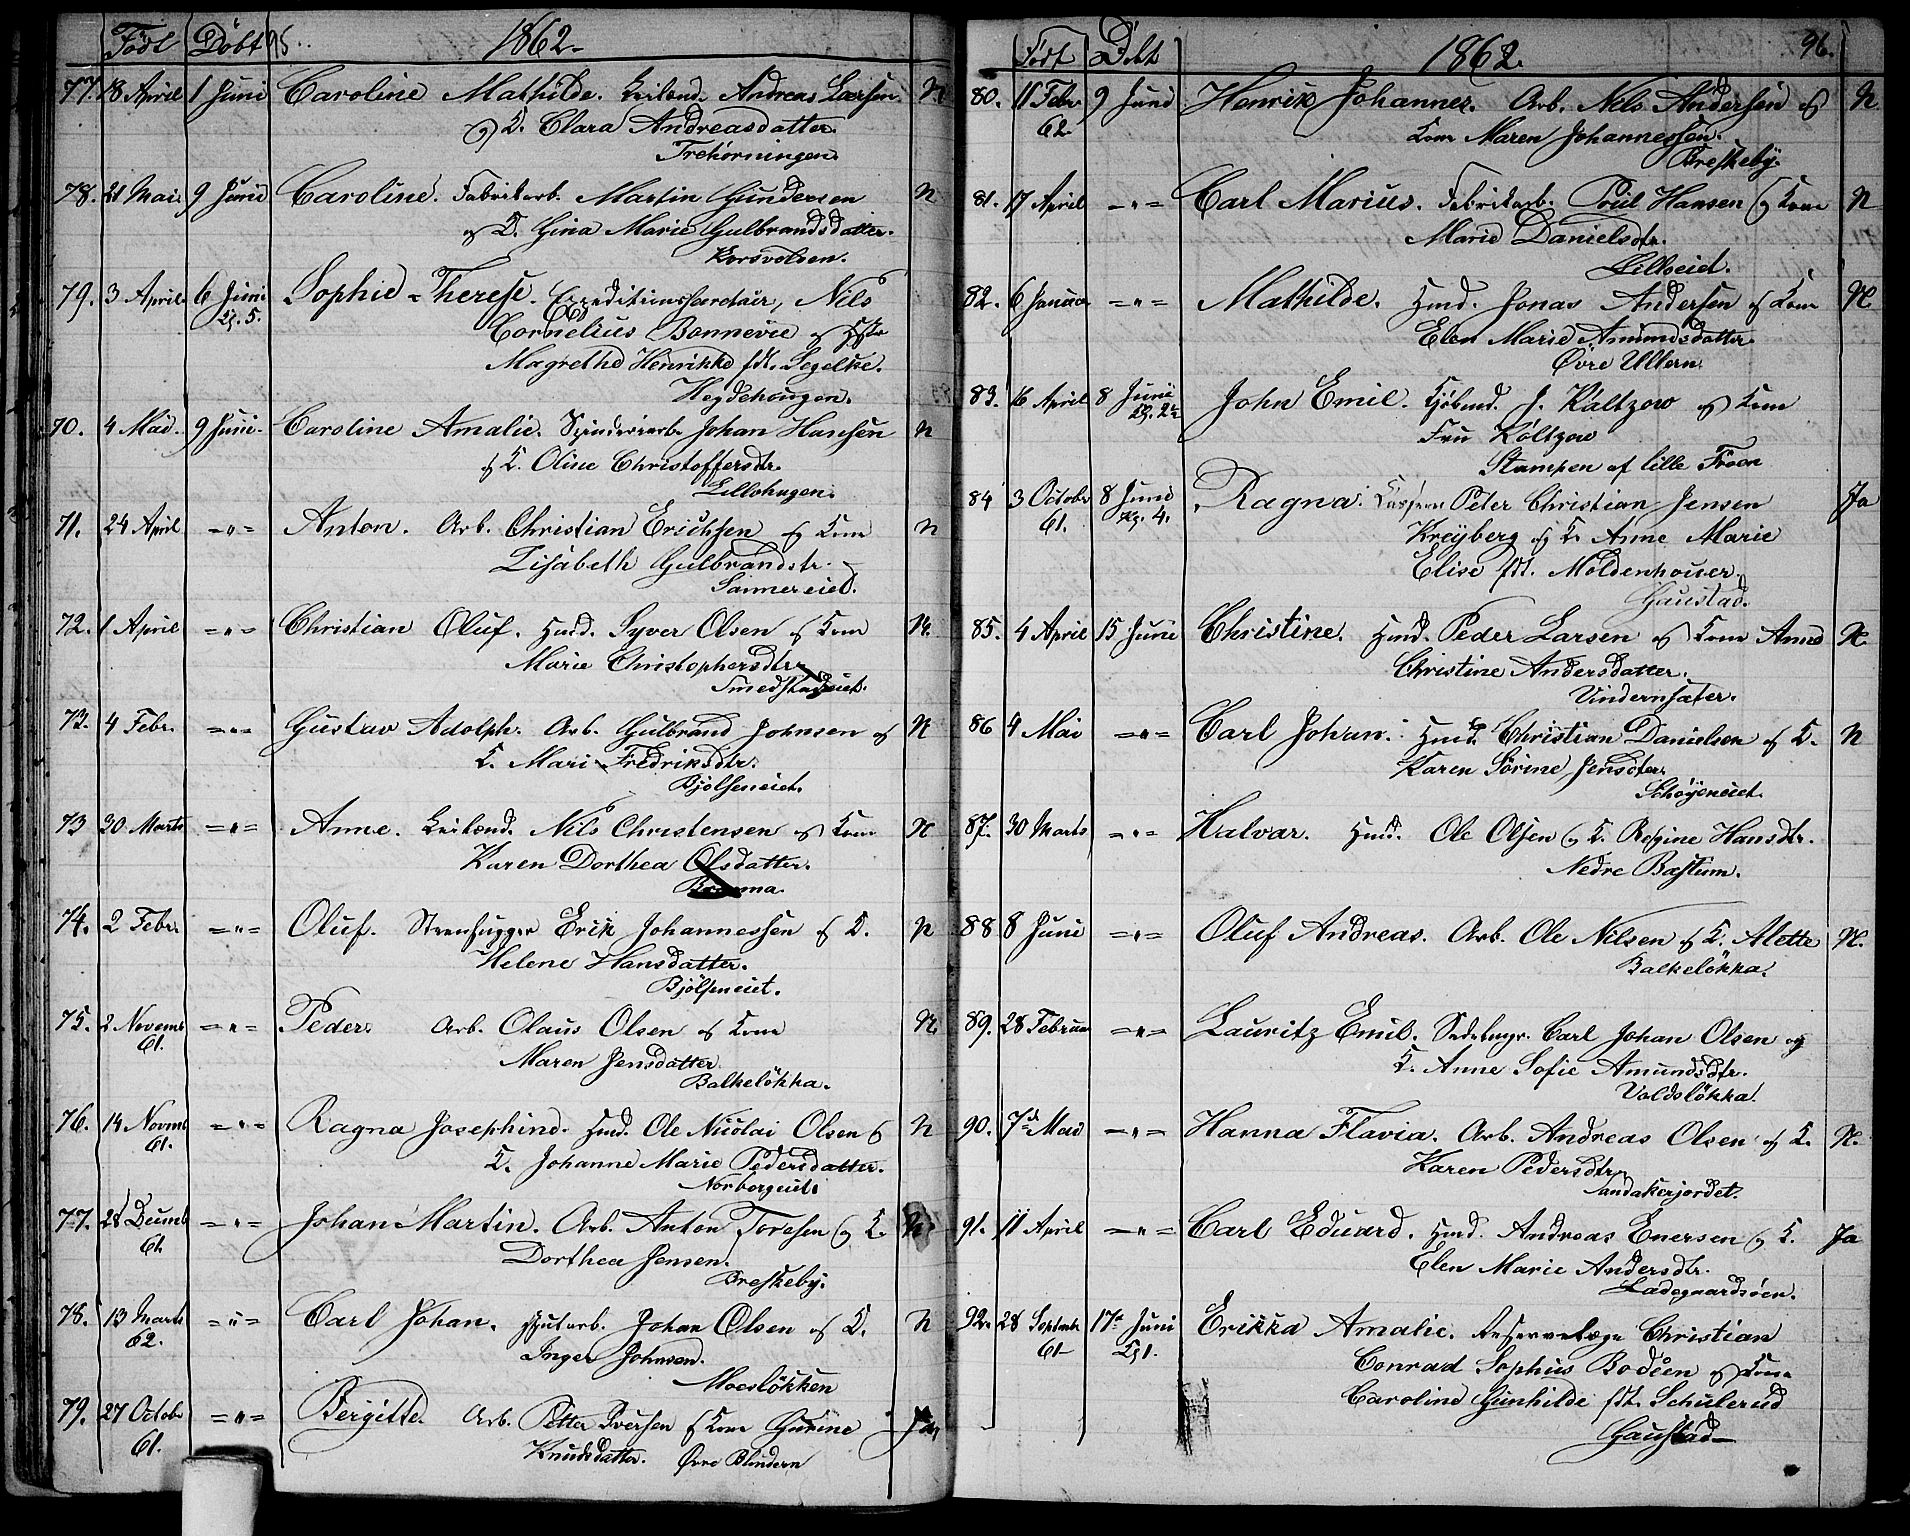 Født Døbt 95. 1862.
77. 18 April 1 Juni Caroline Mathilde. Leilend. Andreas Larsen N
og K. Clara Andreasdatter.
Trehørningen.
78. 21 Mai 9 Juni Caroline. Fabrikarb. Martin Gundersen N
og K. Gina Marie Gulbrandsdatter.
Korsvolden.
79. 3 April 6 Juni Sophie Therese. Expeditionssecretair, Nils
Kg. 5. Cornelius Bonnevie og Hstr
Magrethe Henrikke fdt. Segelke.
Hegdehougen.
70. 4 Mai. 9 Juni. Caroline Amalie. Spinderiarb. Johan Hansen N
og K. Oline Christoffersdtr.
Lillohagen.
71. 24 April =„= Anton. Arb. Christian Erichsen og Kone N
Lisabeth Gulbrandsdtr.
Sannereiet.
72. 1 April =„= Christian Oluf. Hmd. Syver Olsen og Kone N.
Marie Christophersdtr.
Smedstadeiet.
73. 4 Febr. =„= Gustav Adolph. Arb. Gulbrand Johnsen og N
K. Mari Fredriksdtr.
Bjølseneiet.
73 30 Marts =„= Anne. Leilænd. Nils Christensen og Kone N
Karen Dorthea Olsdatter.
74. 2 Febr. =„= Oluf. Steenhugger Erik Johannessen og K. N
Helene Hansdatter.
Bjølseneiet.
75. 2 Novemb =„= Peder. Arb. Olaus Olsen og Kone N.
61. Maren Jensdatter
Balkeløkka.
76. 14 Novmb =„= Ragna Josephine. Hmd. Ole Nicolai Olsen og N
61. K. Johanne Marie Pedersdatter.
Norbergeiet.
77. 28 Decmb =„= Johan Martin. Arb. Anton Toresen og K. N.
61. Dorthea Jensen.
Breskeby.
78. 13 Marts =„= Carl Johan. Johan Olsen og K. N
62. Inger Johnsen.
Moesløkken
79. 27 Octobr =„= Bergitte. Arb. Petter Iversen og Kone Gurine Ja
61. Knudsdatter. Øvre Blindern
Født Døbt 1862. 96.
80. 11 Febr 9 Juni Henrik Johannes. Arb. Nils Andersen og N
62. Kone Maren Johannessen.
Breskeby.
81. 17 April =„= Carl Marius. Fabrikarb. Poul Hansen og Kone N
Marie Danielsdtr.
Lilleeiet.
82. 6 Januar =„= Mathilde. Hmd. Jonas Andersen og Kone N
Elen Marie Amundsdatter
Øvre Ullern.
83. 16 April 8 Juni John Emil. Kjøbmd. J. Kaltzow og Kone
Kg. 2 Fru Koltzow
Stampen af lille Frøen
84 3 Octobr 8 Juni Ragna. Peter Christian Jensen Ja
61. Kg. 4. Kreyberg og K. Anne Marie
Elise fdt. Moldenhouer.
Gaustad.
85. 4 April 15 Juni Christine. Hmd. Peder Larsen og Kone Anne N
Christine Andersdatter.
Vindernsæter.
86 4 Mai =„= Carl Johan. Hmd. Christian Danielsen og K. N
Karen Sørine Jensdtr.
Schøyeneiet.
87. 30 Marts =„= Halvar. Hmd. Ole Olsen og K. Regine Hansdtr.
Nedre Bastum.
88 8 Juni =„= Oluf Andreas. Arb. Ole Nilsen og K. Alette N.
Balkeløkka.
89. 28 Februar =„= Lauritz Emil. Sadelmgr. Carl Johan Olsen og
K. Anne Sofie Amundsdtr.
Voldsløkka.
90. 7 Mai =„= Hanna Flavia. Arb. Andreas Olsen og K. N.
Karen Pedersdtr
Sandakerjordet.
91. 11 April =„= Carl Eduard. Hmd. Andreas Enersen og K. Ja
Elen Marie Andersdtr.
Ladegaardsøen.
92. 28 Septembr 17 Juni Erikka Amalie. Reservelæge Christian
61 Kg 1. Conrad Sophus Bodeen og Kone
Caroline Gunhilde fdt. Schulerud
Gaustad